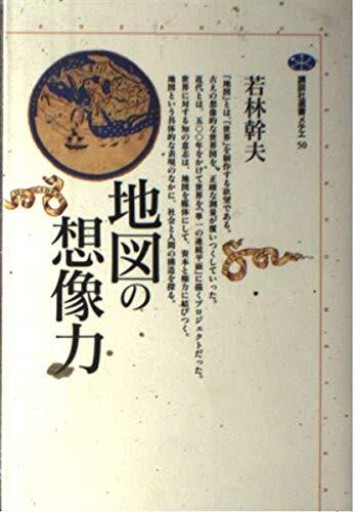 講談社選書メチエ 50
若林幹夫
「地図」とは、「世界」を制作する欲望である。
古えの想像的な世界図を、正確な測量が覆いつくしていった。
近代とは、五〇〇年をかけて世界を〈単一の連続平面〉に描くプロジェクトだった。
世界に対する知の意志は、地図を媒体にして、資本と権力に結びつく。
地図という具体的な表現のなかに、社会と人間の構造を探る。
地図の
想像力